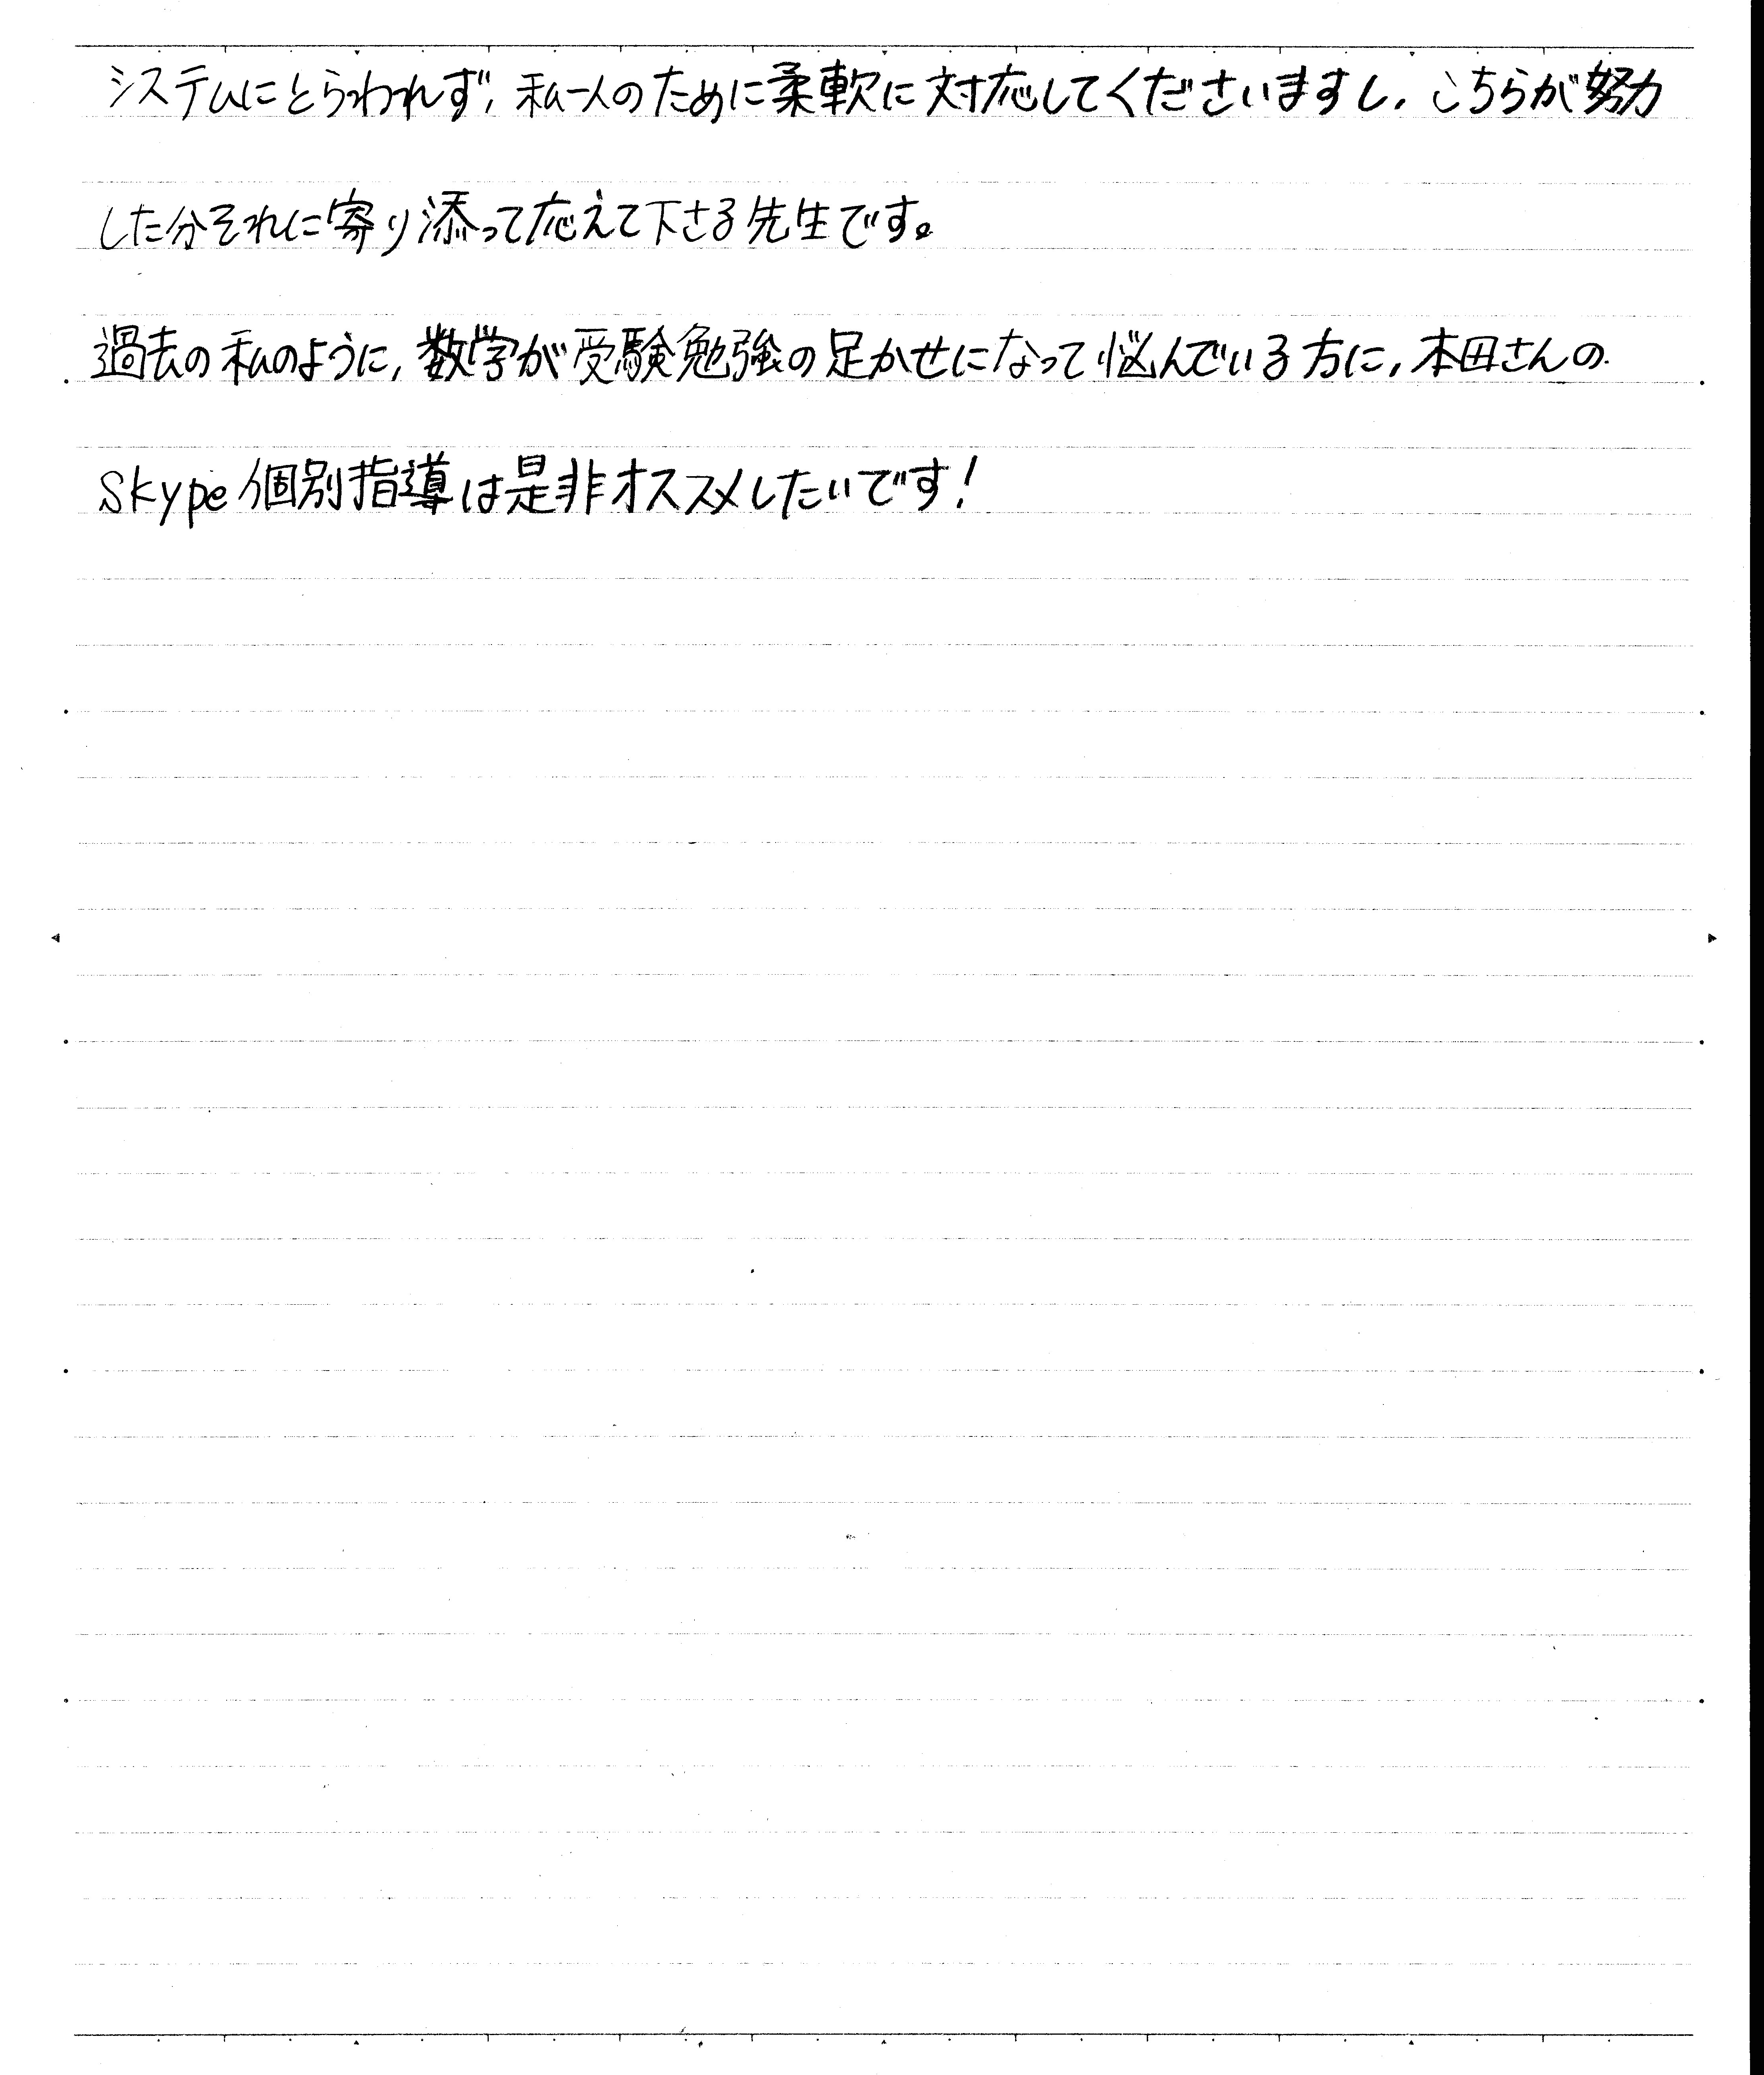 システムにとらわれず、私一人のために柔軟に対応してくださいますし、こちらが努力
した分それに寄り添って応えて下さる先生です。
過去の私のように、数学が受験勉強の足かせになって悩んでいる方に、本田さんの
Skype個別指導は是非オススメしたいです！